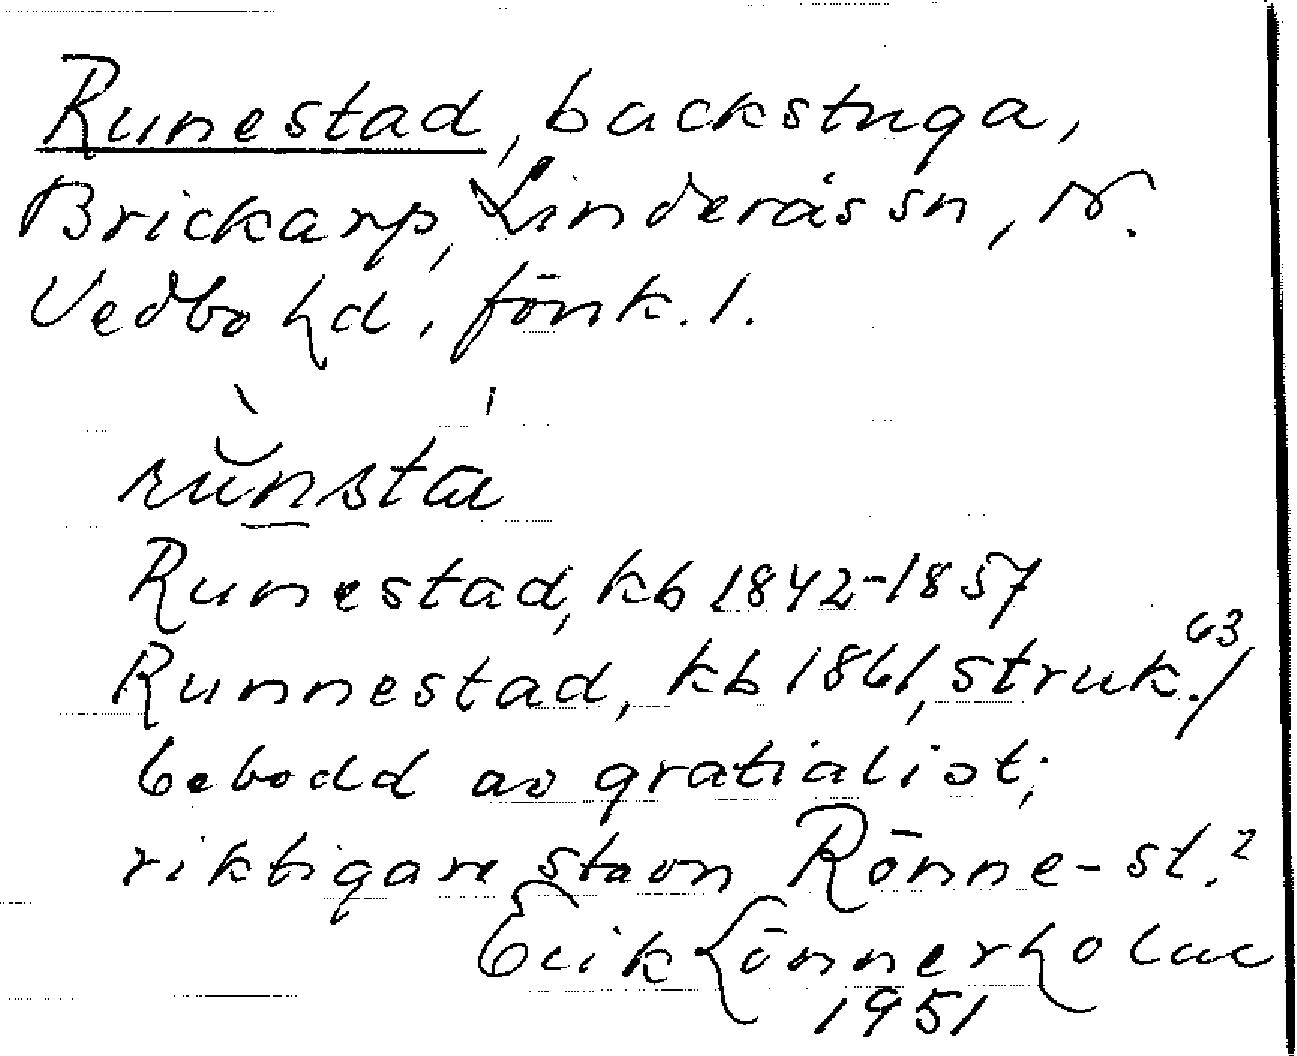 Runestad, backstuga,
Brickarp, Linderås sn, N.
Vedbo hd, Jönk. l.
rŭnstα
Runestad, kb 1842-1857
Runnestad, kb 1861, struk. 63/
bebodd av gratialist;
riktigare stavn Rönne-st.?
Erik Lönnerholm
1951